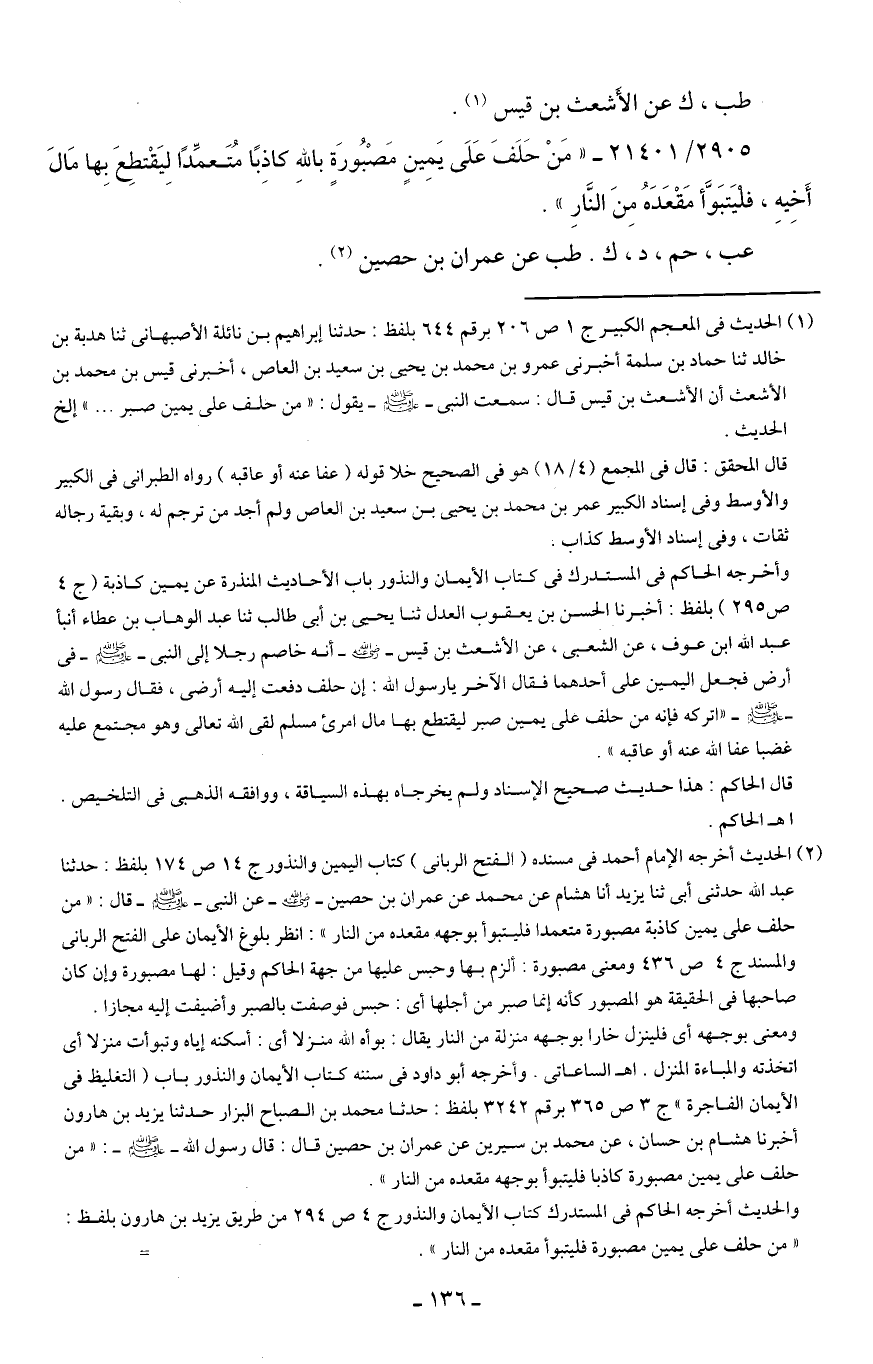 طب ، ك عن الأَشعث بن قيس (١) .
٢١٤٠١/٢٩٠٥ ـ « مَنْ حَلَفَ عَلَى يَمِينٍ مَصْبُورَةٍ بالله كاذبًا مُتَعمِّدًا لِيَقْتطِعَ بِها مَالَ
أَخِيهِ ، فلْيَتَبَوَّأ مَقْعَدَهُ مِنَ النَّارِ » .
عب ، حم ، د ، ك . طب عن عمران بن حصين (٢) .
(١) الحديث فى المعجم الكبير ج ١ ص ٢٠٦ برقم ٦٤٤ بلفظ : حدثنا إبراهيم بن نائلة الأصبهانى ثنا هدبة بن
خالد ثنا حماد بن سلمة أخبرنى عمرو بن محمد بن يحيى بن سعيد بن العاص ، أخبرنى قيس بن محمد بن
الأشعث أن الأشعث بن قيس قال : سمعت النبى ـ ﷺ ـ يقول : « من حلف على يمين صبر ... » إلخ
الحديث .
قال المحقق : قال فى المجمع (١٨/٤) هو فى الصحيح خلا قوله ( عفا عنه أو عاقبه ) رواه الطبرانى فى الكبير
والأوسط وفى إسناد الكبير عمر بن محمد بن يحيى بن سعيد بن العاص ولم أجد من ترجم له ، وبقية رجاله
ثقات ، وفى إسناد الأوسط كذاب .
وأخرجه الحاكم فى المستدرك فى كتاب الأيمان والنذور باب الأحاديث المنذرة عن يمين كاذبة ( ج ٤
ص٢٩٥ ) بلفظ : أخبرنا الحسن بن يعقوب العدل ثنا يحيى بن أبى طالب ثنا عبد الوهاب بن عطاء أنبأ
عبد الله ابن عوف ، عن الشعبى ، عن الأشعث بن قيس ـ رضي الله عنه ـ أنه خاصم رجلا إلى النبى ـ ﷺ ـ فى
أرض فجعل اليمين على أحدهما فقال الآخر يارسول الله : إن حلف دفعت إليه أرضى ، فقال رسول الله
ـ ﷺ ـ «اتركه فإنه من حلف على يمين صبر ليقتطع بها مال امرئ مسلم لقى الله تعالى وهو مجتمع عليه
غضبا عفا الله عنه أو عاقبه » .
قال الحاكم : هذا حديث صحيح الإسناد ولم يخرجاه بهذه السياقة ، ووافقه الذهبى فى التلخيص .
ا هـ الحاكم .
(٢) الحديث أخرجه الإمام أحمد فى مسنده ( الفتح الربانى ) كتاب اليمين والنذور ج ١٤ ص ١٧٤ بلفظ : حدثنا
عبد الله حدثنى أبى ثنا يزيد أنا هشام عن محمد عن عمران بن حصين ـ رضي الله عنه ـ عن النبى ـ ﷺ ـ قال : « من
حلف على يمين كاذبة مصبورة متعمدا فليتبوأ بوجهه مقعده من النار » : انظر بلوغ الأيمان على الفتح الربانى
والمسند ج ٤ ص ٤٣٦ ومعنى مصبورة : ألزم بها وحبس عليها من جهة الحاكم وقيل : لها مصبورة وإن كان
صاحبها فى الحقيقة هو المصبور كأنه إنما صبر من أجلها أى : حبس فوصفت بالصبر وأضيفت إليه مجازا .
ومعنى بوجهه أى فلينزل خارا بوجهه منزلة من النار يقال : بوأه الله منزلا أى : أسكنه إياه وتبوأت منزلا أى
اتخذته والمباءة المنزل . اهـ الساعاتى . وأخرجه أبو داود فى سننه كتاب الأيمان والنذور باب ( التغليظ فى
الأيمان الفاجرة » ج ٣ ص ٣٦٥ برقم ٣٢٤٢ بلفظ : حدثا محمد بن الصباح البزار حدثنا يزيد بن هارون
أخبرنا هشام بن حسان ، عن محمد بن سيرين عن عمران بن حصين قال : قال رسول الله ـ ﷺ ـ : « من
حلف على يمين مصبورة كاذبا فليتبوأ بوجهه مقعده من النار » .
والحديث أخرجه الحاكم فى المستدرك كتاب الأيمان والنذور ج ٤ ص ٢٩٤ من طريق يزيد بن هارون بلفظ :
« من حلف على يمين مصبورة فليتبوأ مقعده من النار » . =
ـ ١٣٦ ـ